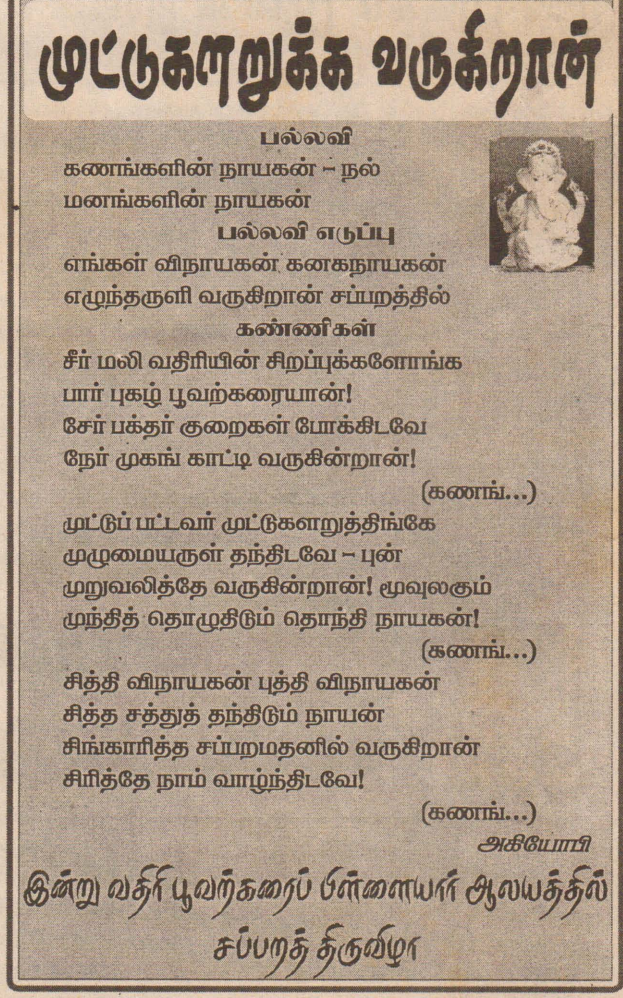 முட்டுகளறுக்க வருகிறான்
பல்லவி
கணங்களின் நாயகன் – நல்
மனங்களின் நாயகன்
பல்லவி எடுப்பு
எங்கள் விநாயகன் கனகநாயகன்
எழுந்தருளி வருகிறான் சப்பறத்தில்
கண்ணிகள்
சீர் மலி வதிரியின் சிறப்புக்களோங்க
பார் புகழ் பூவற்கரையான்!
சேர் பக்தர் குறைகள் போக்கிடவே
நேர் முகங் காட்டி வருகின்றான்!
(கணங்...)
முட்டுப் பட்டவர் முட்டுகளறுத்திங்கே
முழுமையருள் தந்திடவே – புன்
முறுவலித்தே வருகின்றான்! மூவுலகும்
முந்தித் தொழுதிடும் தொந்தி நாயகன்!
(கணங்...)
சித்தி விநாயகன் புத்தி விநாயகன்
சித்த சத்துத் தந்திடும் நாயன்
சிங்காரித்த சப்பறமதனில் வருகிறான்
சிரித்தே நாம் வாழ்ந்திடவே!
(கணங்...)
அகியோபி
இன்று வதிரி பூவற்கரைப் பிள்ளையார் ஆலயத்தில்
சப்பறத் திருவிழா